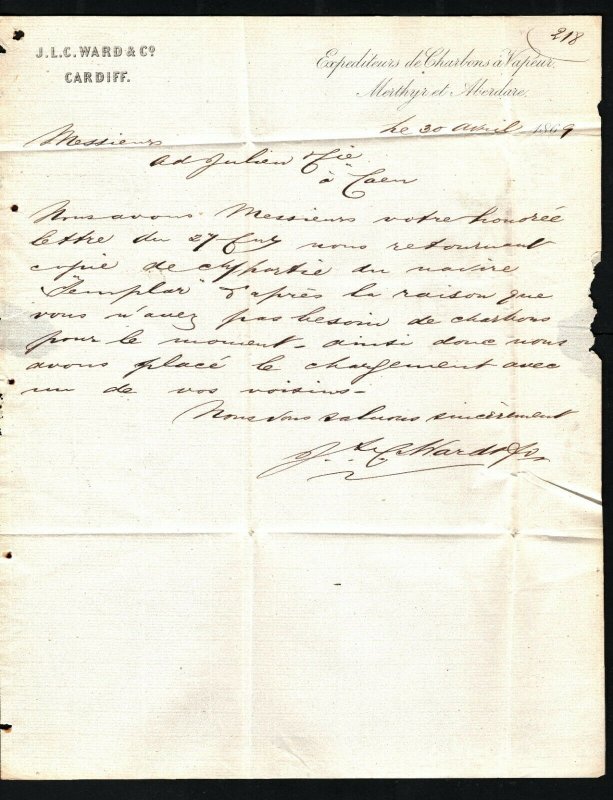 218
J.L.C. WARD & Co
CARDIFF.
Expediteurs de Charbons à Vapeur,
Merthyr et Aberdare.
Le 30 Avril 1869
Messieurs
Ad Julien & Cie
à Caen
Nous avons Messieurs votre honorée
lettre du 27 nous retournant
copie de partie du navire
"Templar" d'après la raison que
vous n'avez pas besoin de charbons
pour le moment - ainsi donc nous
avons placé le chargement avec
un de vos voisins -
Nous vous saluons sincèrement
J. L. C. Ward & Co